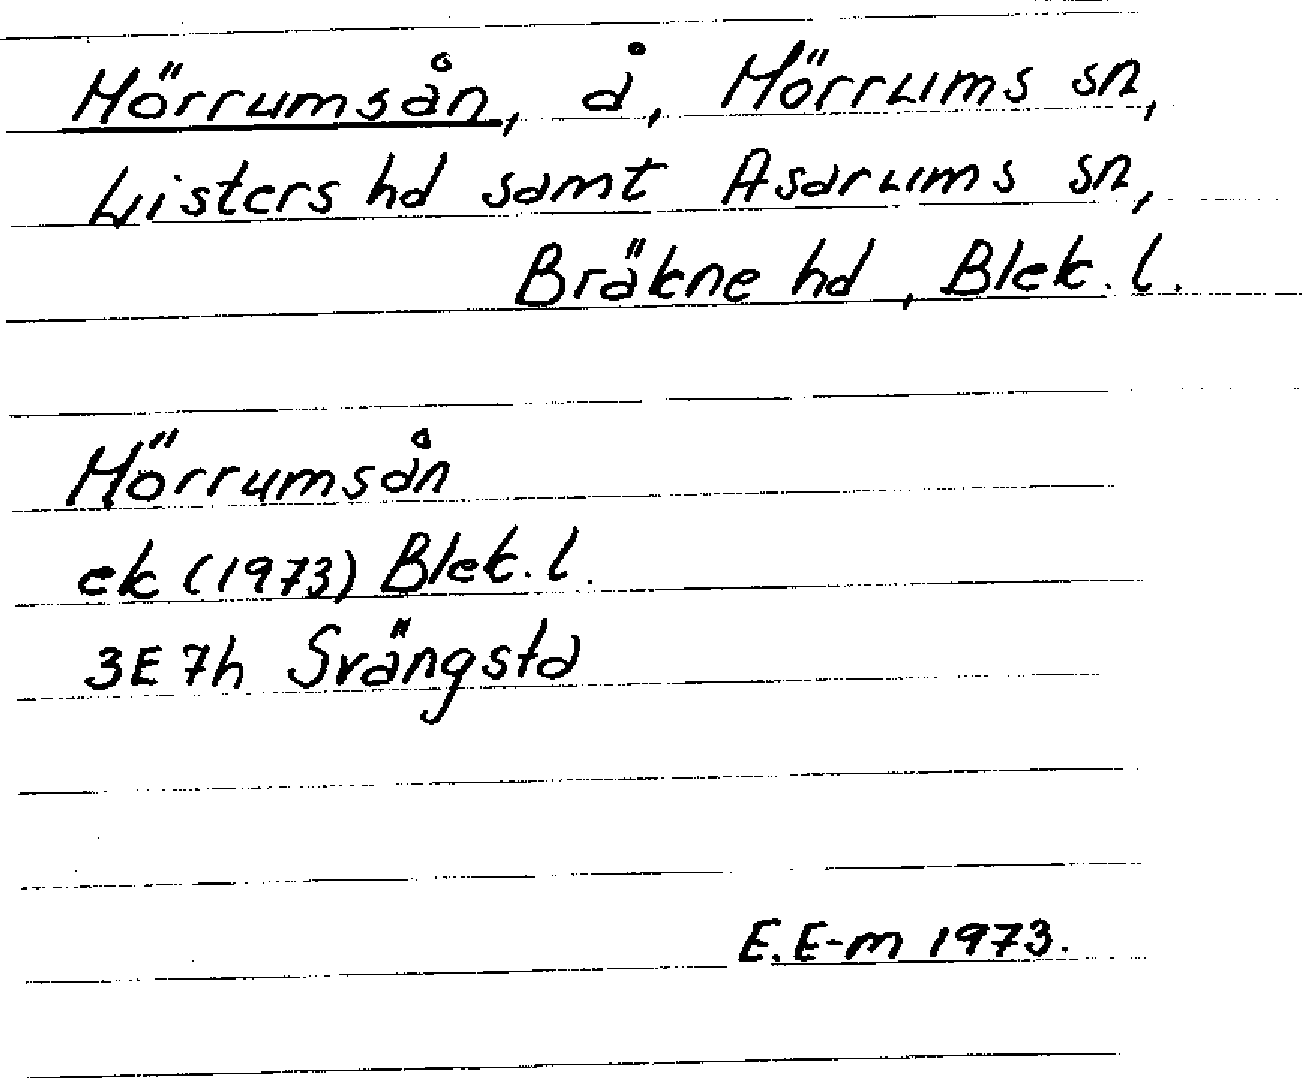 Mörrumsån, å, Mörrums sn,
Listers hd samt Asarums sn,
Bräkne hd, Blek. l.
Mörrumsån
ek (1973) Blek. l.
3E 7h Svängsta
E. E-m 1973.